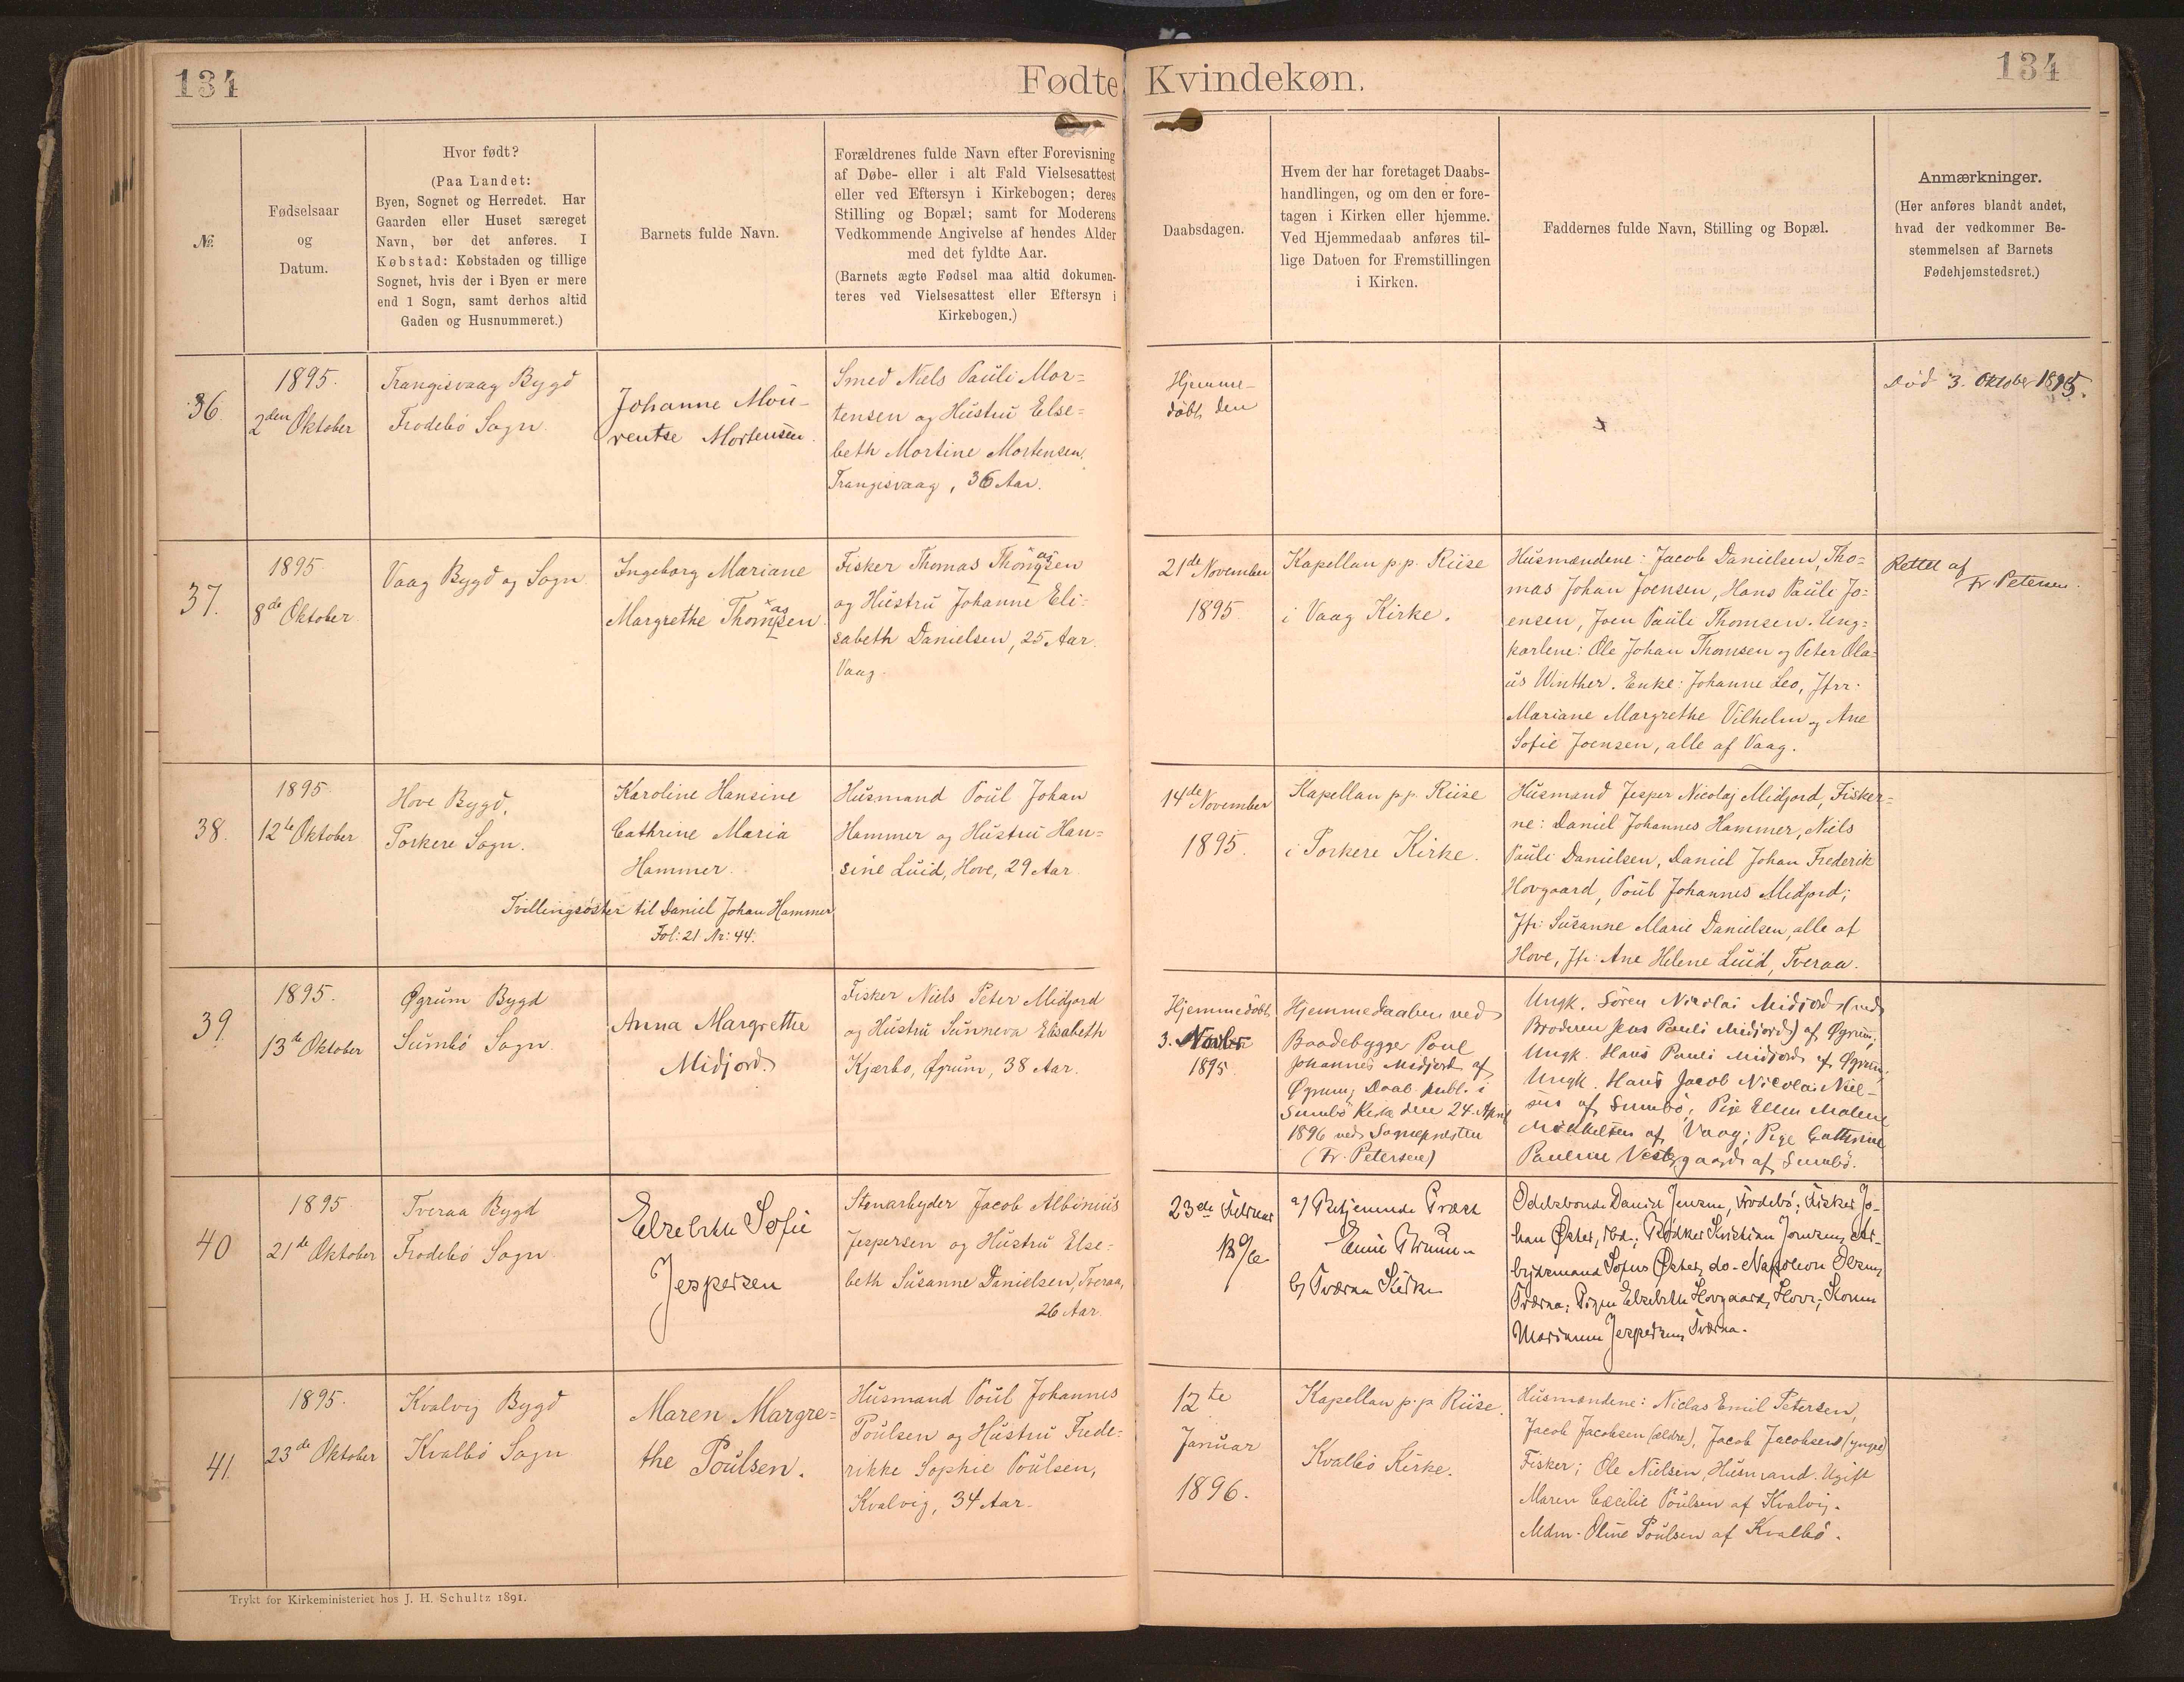 134
Fødte
Kvindekøn.
134
№.
Fødselsaar
og
Datum.
Hvor født?
(Paa Landet:
Byen, Sognet og Herredet. Har
Gaarden eller Huset særeget
Navn, bør det anføres. I
Købstad: Købstaden og tillige
Sognet, hvis der i Byen er mere
end 1 Sogn, samt derhos altid
Gaden og Husnummeret.)
Barnets fulde Navn.
Forældrenes fulde Navn efter Forevisning
af Døbe- eller i alt Fald Vielsesattest
eller ved Eftersyn i Kirkebogen; deres
Stilling og Bopæl; samt for Moderens
Vedkommende Angivelse af hendes Alder
med det fyldte Aar.
(Barnets ægte Fødsel maa altid dokumen-
teres ved Vielsesattest eller Eftersyn i
Kirkebogen.)
Daabsdagen.
Hvem der har foretaget Daabs-
handlingen, og om den er fore-
tagen i Kirken eller hjemme.
Ved Hjemmedaab anføres til-
lige Datoen for Fremstillingen
i Kirken.
Faddernes fulde Navn, Stilling og Bopæl.
Anmærkninger.
(Her anføres blandt andet,
hvad der vedkommer Be-
stemmelsen af Barnets
Fødehjemstedsret.)
36.
1895.
2den Oktober
Trangisvaag Bygd
Frodebö Sogn.
Johanne Mou-
rentse Mortensen.
Smed Niels Pauli Mor=
tensen og Hustru Else=
beth Mortine Mortensen,
Trangisvaag, 36 Aar.
Hjemme-
döbt den
Död 3. Oktober 1895.
37.
1895
8de Oktober
Vaag Bygd og Sogn
Ingeborg Mariane
Margrethe Thomsen
as
Fisker Thomas Thomsen
as
og Hustru Johanne Eli=
sabeth Danielsen, 25 Aar.
Vaag.
21de November
1895
Kapellan p.p. Riise
i Vaag Kirke.
Husmændene: Jacob Danielsen, Tho=
mas Johan Joensen, Hans Pauli Jo=
ensen, Joen Pauli Thomsen. Ung=
karlene: Ole Johan Thomsen og Peter Ola=
us Winther. Enke: Johanne Leo, Jfrr.
Mariane Margrethe Vilhelm og Ane
Sofie Joensen, alle af Vaag.
Rettet af
Fr. Petersen.
38.
1895.
12te Oktober
Hove Bygd,
Porkere Sogn.
Karoline Hansine
Cathrine Maria
Hammer.
Tvillingsöster til Daniel Johan Hammer
Fol: 21 Nr: 44.
Husmand Poul Johan
Hammer og Hustru Han=
sine Luid, Hove, 29 Aar.
14de November
1895.
Kapellan p.p. Riise
i Porkere Kirke.
Husmand Jesper Nicolaj Midjord, Fisker=
ne: Daniel Johannes Hammer, Niels
Pauli Danielsen, Daniel Johan Frederik
Hovgaard, Poul Johannes Midjord;
Jfr: Susanne Marie Danielsen, alle af
Hove, Jfr: Ane Helene Luid, Tveraa.
39.
1895.
13de Oktober
Øgrum Bygd
Sumbö Sogn
Anna Margrethe
Midjord.
Fisker Niels Peter Midjord
og Hustru Sunneva Elisabeth
Kjærbo, Øgrum, 38 Aar.
Hjemmedöbt
3. Novbr
1895
Hjemmedaaben ved
Baadebygge Poul
Johannes Midjord af
Øgrum; Daab publ. i
Sumbö Kirke den 24. April
1896 ved Sognepræsten
(Fr. Petersen)
Ungk. Sören Nikolai Midjord (ved
Broderen Jens Pauli Midjord) af Øgrum;
Ungk. Hans Pauli Midjord af Øgrum;
Ungk. Hans Jacob Nicolai Niel-
sen af Sumbö; Pige Ellen Malene
Mikkelsen af Vaag; Pige Cathrine
Pauline Vestergaard af Sumbö.
40
1895
21de Oktober
Tveraa Bygd
Frodebö Sogn
Elsebeth Sofie
Jespersen
Stenarbyder Jacob Albinius
Jespersen og Hustru Else=
beth Susanne Danielsen, Tveraa,
26 Aar.
23de Februar
18 96
a) Betjenende Præst
Emil Bruun
b) Tværaa Kirke
Odelsbonde Daniel Jensen, Frodebö; Fisker Jo-
han Øster, ibd.; Bödker Kristian Joensen, Ar-
bejdsmand Sofus Øster, do. Napoleon Olsen,
Tværaa; Pigen Elsebeth Hovgaard, Hove; Konen
Marianne Jespersen, Tværaa.
41.
1895.
23de Oktober
Kvalvig Bygd
Kvalbö Sogn
Maren Margre=
the Poulsen.
Husmand Poul Johannes
Poulsen og Hustru Frede=
rikke Sophie Poulsen,
Kvalvig, 34 Aar.
12te
Januar
1896.
Kapellan p.p Riise.
Kvalbö Kirke.
Husmændene: Niclas Emil Petersen,
Jacob Jacobsen (ældre), Jacob Jacobsen (yngre)
Fisker; Ole Nielsen, Husmand. Ugift
Maren Cæcilie Poulsen af Kvalvig.
Mdm. Oline Poulsen af Kvalbö.
Trykt for Kirkeministeriet hos J. H. Schultz 1891.